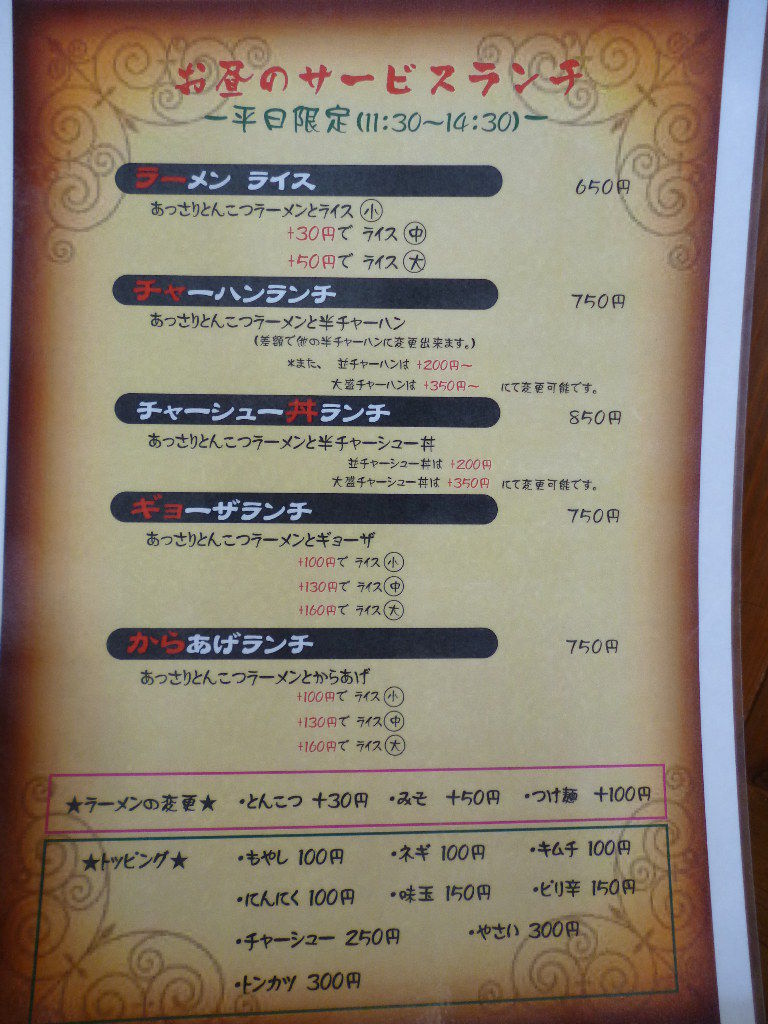 お昼のサービスランチ
ー平日限定(11:30～14:30)ー
ラーメン ライス 650円
あっさりとんこつラーメンとライス 小
+30円で ライス 中
+50円で ライス 大
チャーハンランチ 750円
あっさりとんこつラーメンと半チャーハン
(差額で他の半チャーハンに変更出来ます。)
*また、 並チャーハンは +200円～
大盛チャーハンは +350円～ にて変更可能です。
チャーシュー丼ランチ 850円
あっさりとんこつラーメンと半チャーシュー丼
並チャーシュー丼は +200円
大盛チャーシュー丼は +350円 にて変更可能です。
ギョーザランチ 750円
あっさりとんこつラーメンとギョーザ
+100円で ライス 小
+130円で ライス 中
+160円で ライス 大
からあげランチ 750円
あっさりとんこつラーメンとからあげ
+100円で ライス 小
+130円で ライス 中
+160円で ライス 大
★ラーメンの変更★ ・とんこつ +30円 ・みそ +50円 ・つけ麺 +100円
★トッピング★ ・もやし 100円 ・ネギ 100円 ・キムチ 100円
・にんにく 100円 ・味玉 150円 ・ピリ辛 150円
・チャーシュー 250円 ・やさい 300円
・トンカツ 300円